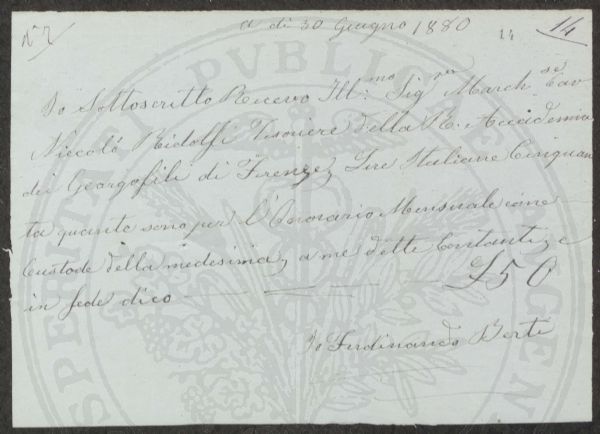 N° 7
a dì 30 Giugno 1880
14
14
Io Sottoscritto Ricevo Ill:mo Sigre Marchse Cav
Niccolò Ridolfi Tesoriere della R. Accademia
dei Georgofili di Firenze, Lire Italiane Cinquan
ta quanto sono per l'Onorario Mensuale come
Custode della medesima, a me dette Contanti, e
in fede dico £50
Io Ferdinando Berti
PVBLICA
PROSPERITATI